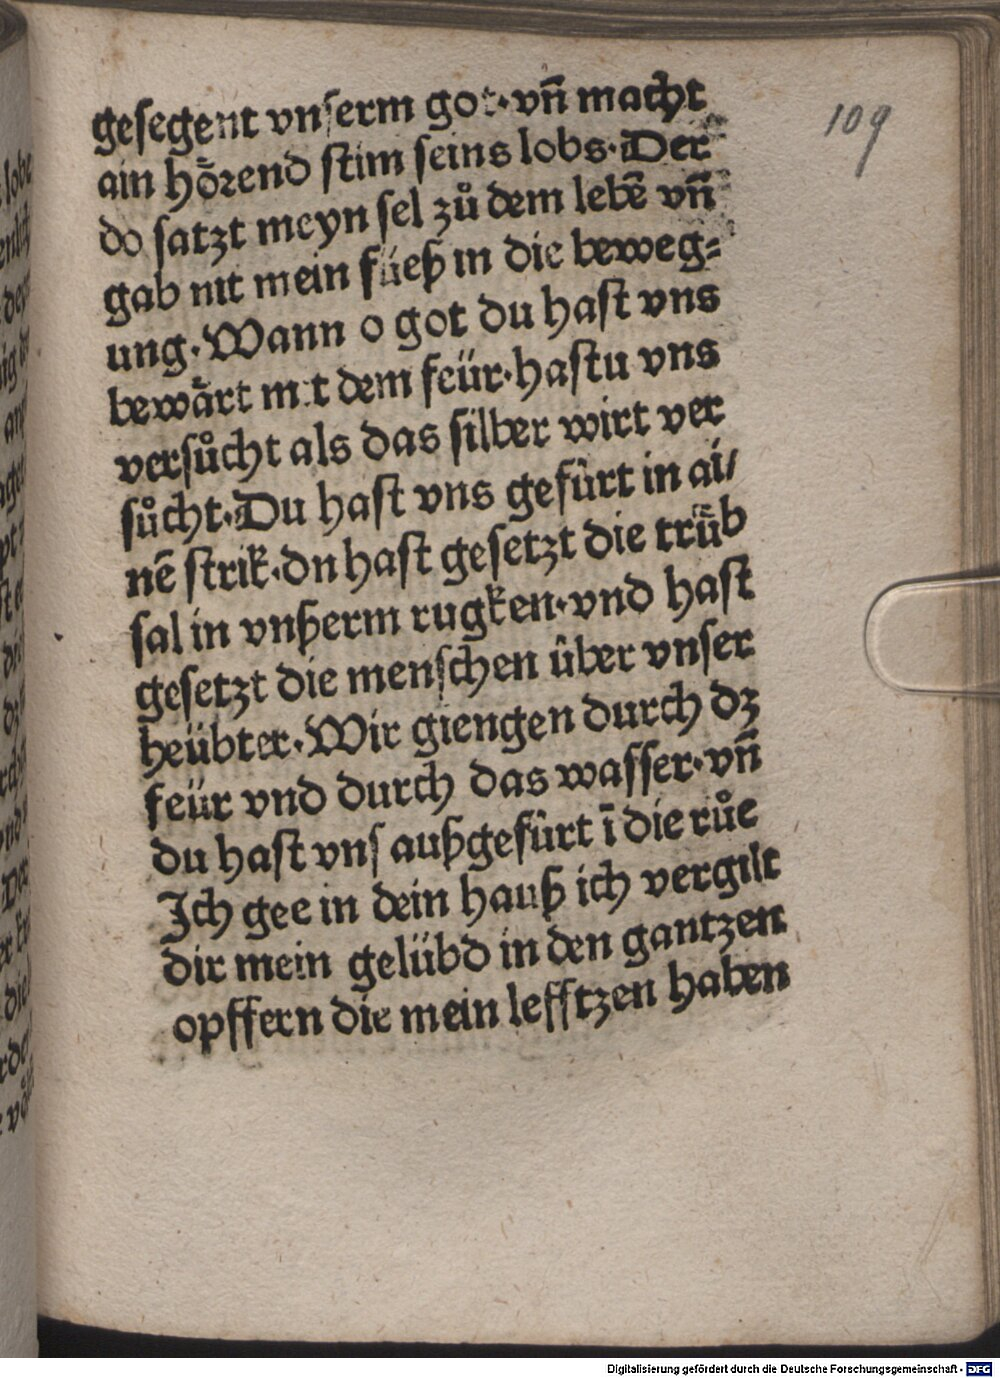 109
gesegent vnserm got·vn̄ macht
ain hoͤrend stim seins lobs·Der
do satzt meyn sel zuͦ dem lebē vn̄
gab nit mein fueß in die beweg⸗
ung·Wann o got du hast vns
bewaͤrt mit dem feür·hastu vns
versuͦcht als das silber wirt ver
suͦcht·Du hast vns gefürt in ai/
nē strik·dn hast gesetzt die truͤb
sal in vnßerm rugken·vnd hast
gesetzt die menschen über vnser
heübter·Wir giengen durch dz
feür vnd durch das wasser·vn̄
du hast vns außgefürt ī die ruͦe
Ich gee in dein hauß ich vergilt
dir mein gelübd in den gantzen
opffern die mein lefftzen haben
Digitalisierung gefördert durch die Deutsche Forschungsgemeinschaft - DFG